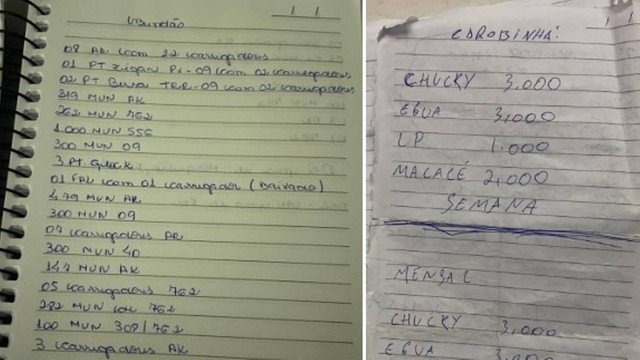 08 AR com 22 carregadores
01 PT 09 com 02 carregadores
02 PT 09 com 02 carregadores
319 MUN AK
262 MUN 762
1.000 MUN 556
300 MUN 09
3 PT Glock
01 FAL com 01 carregador
479 MUN AR
300 MUN 09
07 carregadores AR
300 MUN 40
147 MUN AK
05 carregadores 762
282 MUN 762
100 MUN 308/762
3 carregadores AK
COROBINHA:
CHUCKY 3.000
EGUA 3,000
LP 1.000
MACALÉ 2,000
SEMANA
MENSAL
CHUCKY 3,000
EGUA 3.000